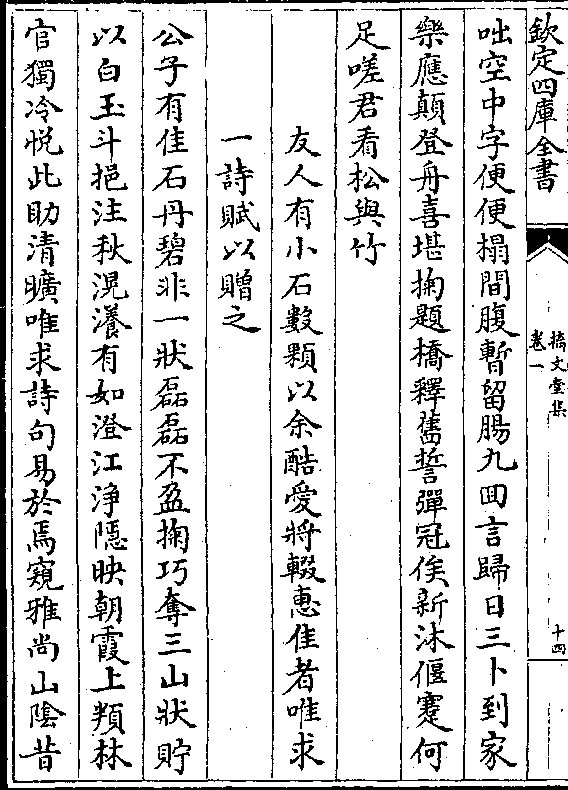 欽定四庫全書
摛文堂集
卷一
十四
咄空中字便便榻間腹暫留腸九回言歸日三卜到家
樂應顛登舟喜堪掬題橋釋舊誓彈冠俟新沐偃蹇何
足嗟君看松與竹
友人有小石數顆以余酷愛將輟惠佳者唯求
一詩賦以贈之
公子有佳石丹碧非一狀磊磊不盈掬巧奪三山狀貯
以白玉斗挹注秋滉瀁有如澄江淨隱映朝霞上頖林
官獨冷悅此助清曠唯求詩句易於焉窺雅尚山陰昔